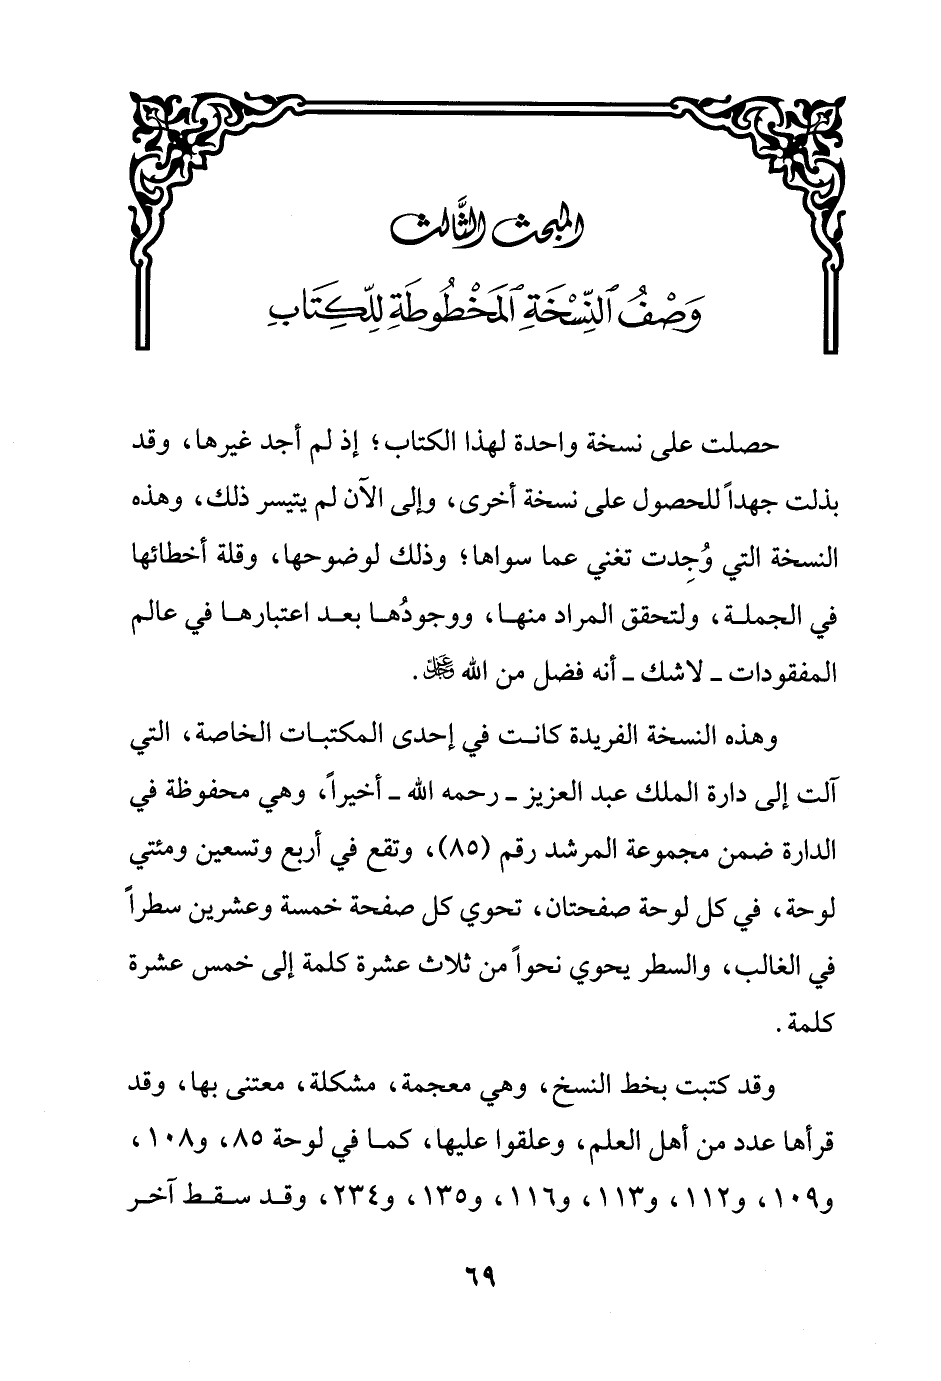 المبحث الثَّالث
وَصْفُ ٱلنِّسْخَةِ ٱلمَخْطُوطَةِ لِلْكِتَابِ
حصلت على نسخة واحدة لهذا الكتاب؛ إذ لم أجد غيرها، وقد
بذلت جهداً للحصول على نسخة أخرى، وإلى الآن لم يتيسر ذلك، وهذه
النسخة التي وُجِدت تغني عما سواها؛ وذلك لوضوحها، وقلة أخطائها
في الجملة، ولتحقق المراد منها، ووجودُها بعد اعتبارها في عالم
المفقودات ـ لاشك ـ أنه فضل من الله عَزَّوَجَلَّ.
وهذه النسخة الفريدة كانت في إحدى المكتبات الخاصة، التي
آلت إلى دارة الملك عبد العزيز ـ رحمه الله ـ أخيراً، وهي محفوظة في
الدارة ضمن مجموعة المرشد رقم (٨٥)، وتقع في أربع وتسعين ومئتي
لوحة، في كل لوحة صفحتان، تحوي كل صفحة خمسة وعشرين سطراً
في الغالب، والسطر يحوي نحواً من ثلاث عشرة كلمة إلى خمس عشرة
كلمة.
وقد كتبت بخط النسخ، وهي معجمة، مشكلة، معتنى بها، وقد
قرأها عدد من أهل العلم، وعلقوا عليها، كما في لوحة ٨٥، و١٠٨،
و١٠٩، و١١٢، و١١٣، و١١٦، و١٣٥، و٢٣٤، وقد سقط آخر
٦٩